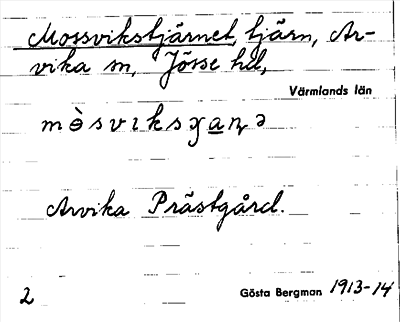 Mossvikstjärnet, tjärn, Ar-
vika sn, Jösse hd,
Värmlands län
mòsviksχa̲ɳə
Arvika Prästgård.
2 Gösta Bergman 1913-14